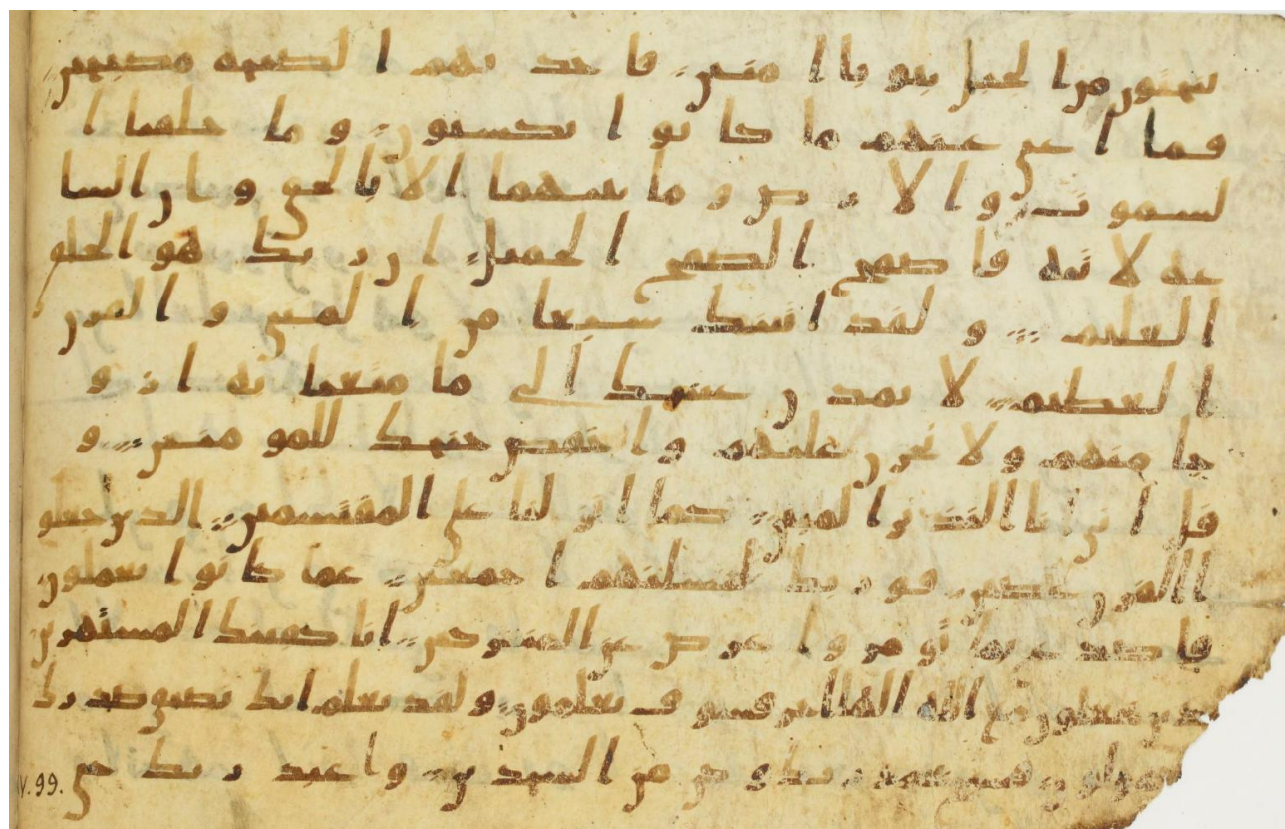 ينحتون من الجبل بيوتا امنين فاخذتهم الصيحة مصبحين
فما اغنى عنهم ما كانوا يكسبون وما خلقنا ا
لسموت والارض وما بينهما الا بالحق وان السا
عة لاتية فاصفح الصفح الجميل ان ربك هو الخلق
العليم ولقد اتينك سبعا من المثني والقرن
العظيم لا تمدن عينيك الى ما متعنا به ازو
جا منهم ولا تحزن عليهم واخفض جنحك للمومنين و
قل اني انا النذير المبين كما انزلنا على المقتسمين الذين جعلو
ا القرن عضين فوربك لنسلنهم اجمعين عما كانوا يعملون
فاصدع بما تومر واعرض عن المشركين انا كفينك المستهزين
الذين يجعلون مع الله الها اخر فسوف يعلمون ولقد نعلم انك يضيق صدرك
يقولون فسبح بحمد ربك وكن من السجدين واعبد ربك حتى
V.99.